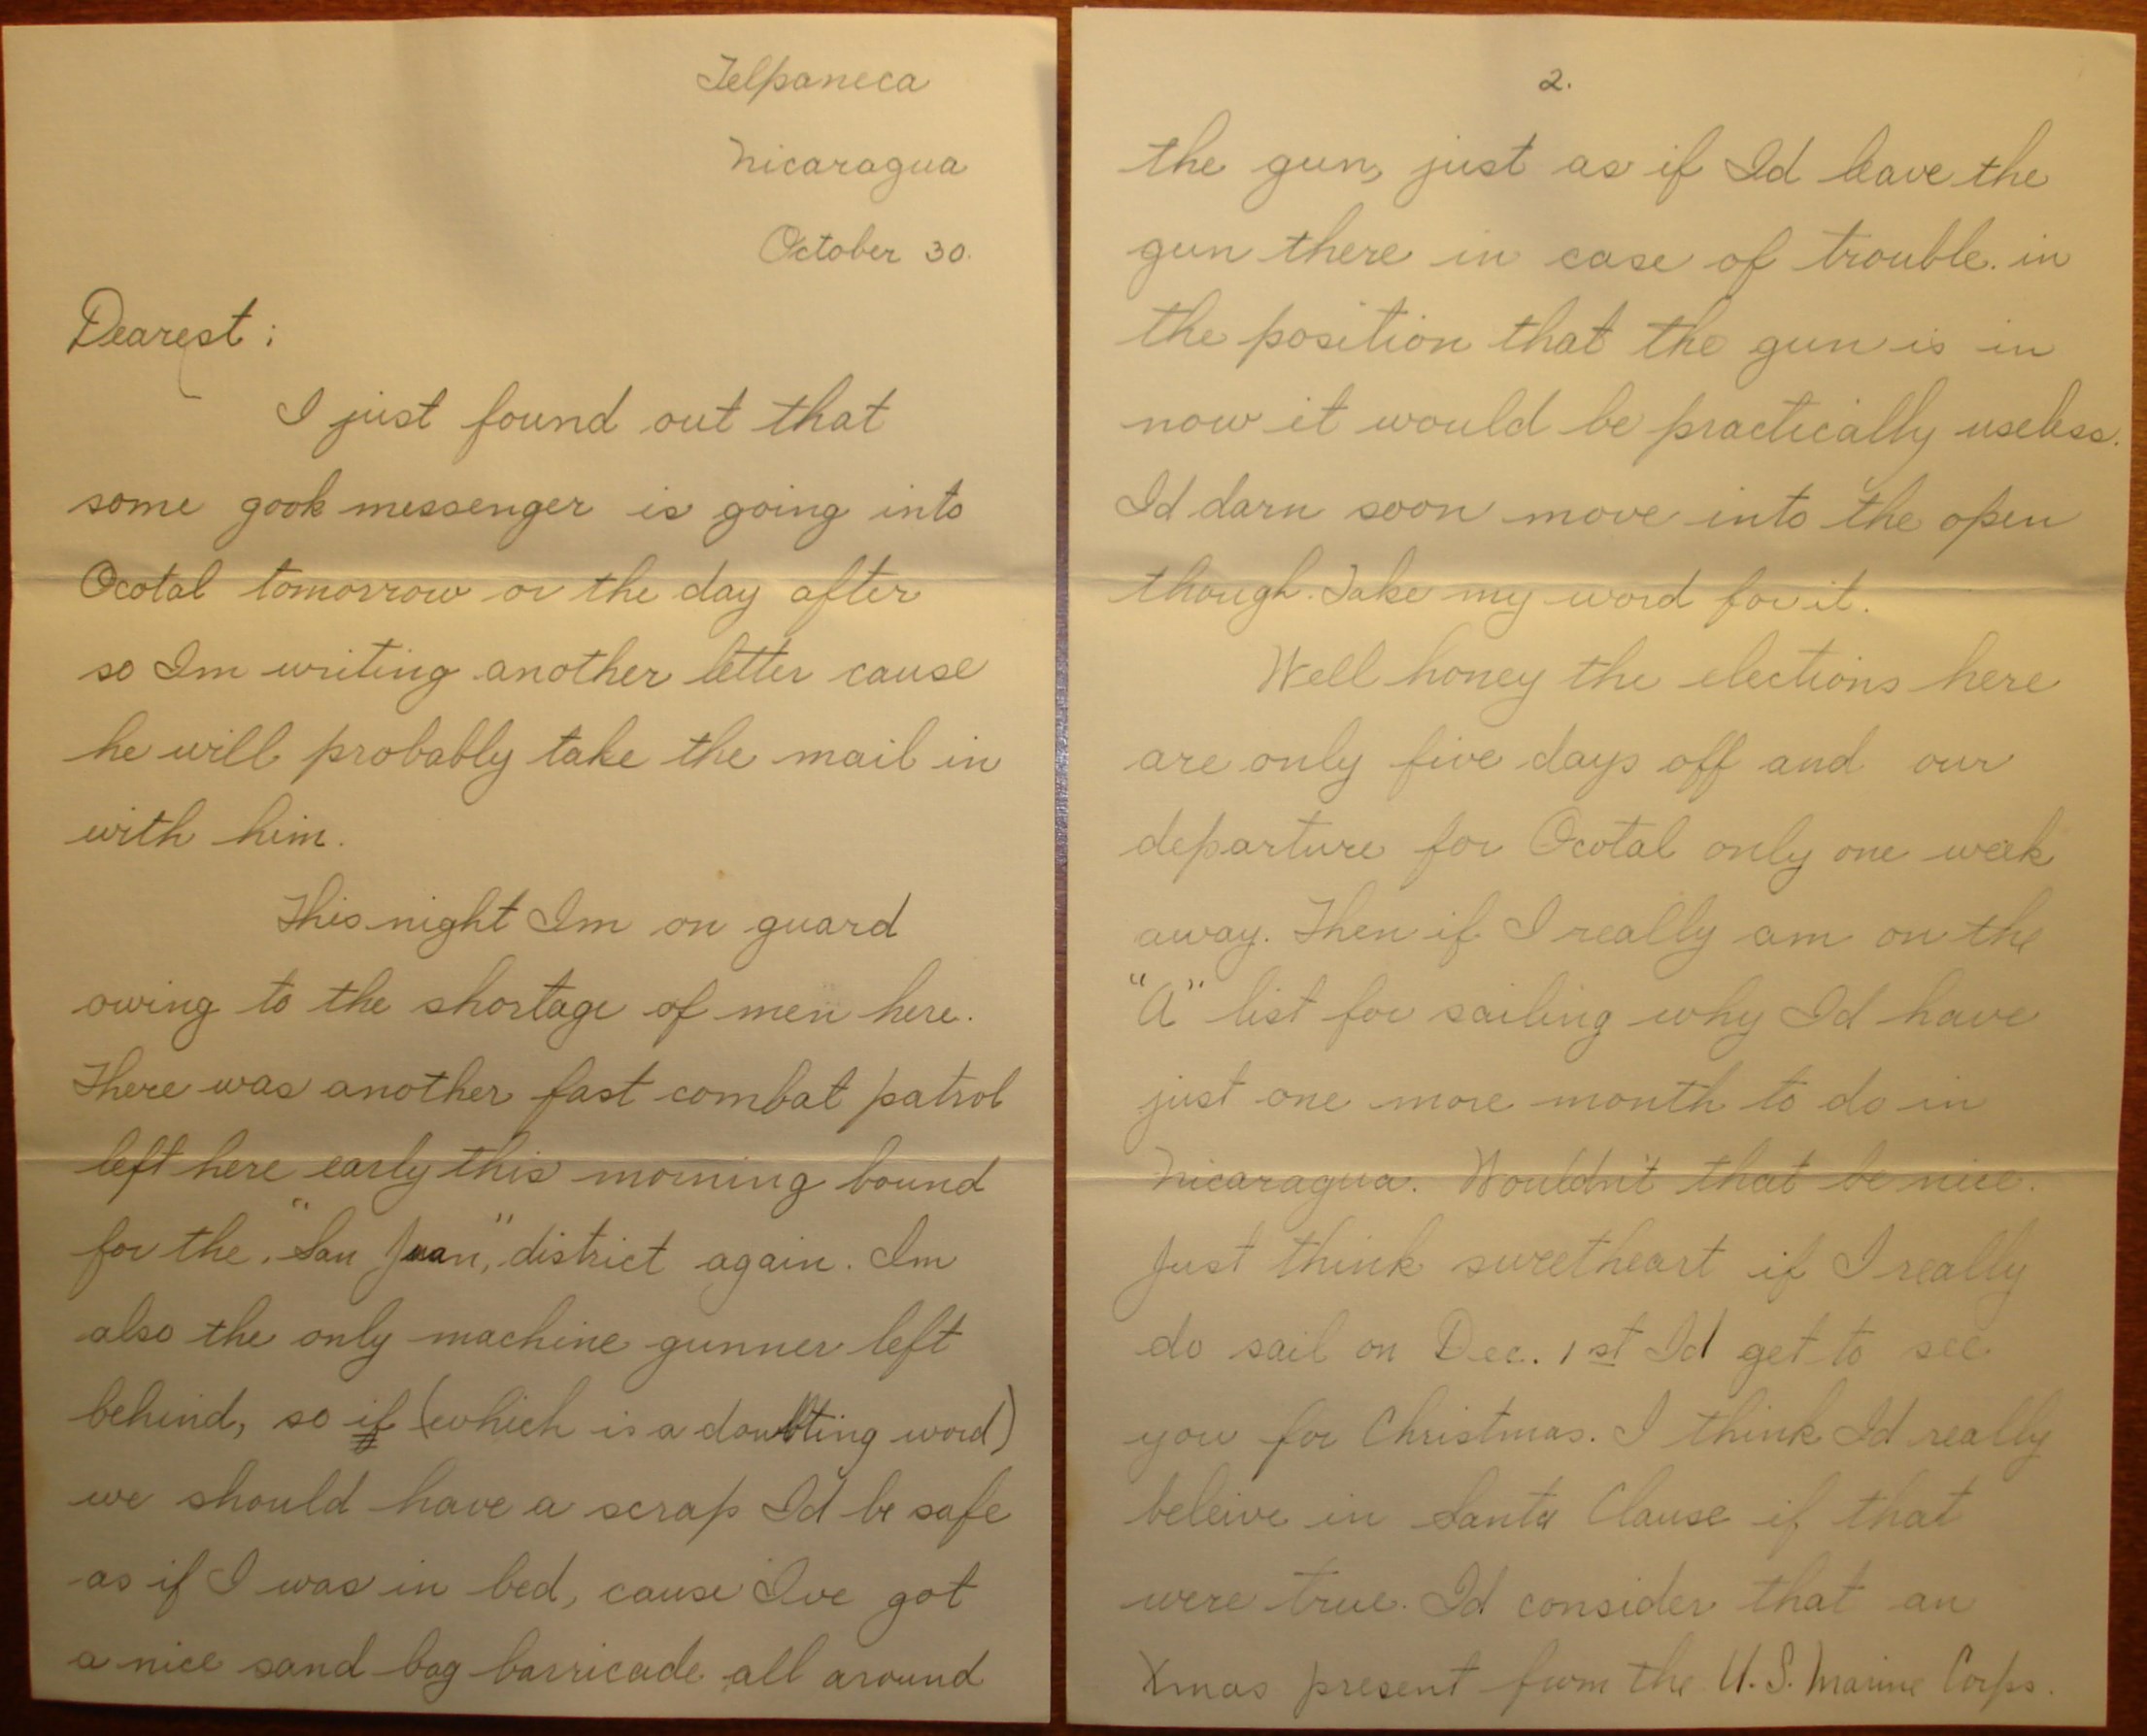 Telpaneca
Nicaragua
October 30.
Dearest:
I just found out that
some gook messenger is going into
Ocotal tomorrow or the day after
so Im writing another letter cause
he will probably take the mail in
with him.
This night Im on guard
owing to the shortage of men here.
There was another fast combat patrol
left here early this morning bound
for the "San Juan," district again. Im
also the only machine gunner left
behind, so if (which is a doubting word)
we should have a scrap Id be safe
as if I was in bed, cause I've got
a nice sand bag barricade all around
2.
the gun, just as if Id leave the
gun there in case of trouble. in
the position that the gun is in
now it would be practically useless.
Id darn soon move into the open
though. Take my word for it.
Well honey the elections here
are only five days off and our
departure for Ocotal only one week
away. Then if I really am on the
"A" list for sailing why Id have
just one more month to do in
Nicaragua. Wouldn't that be nice.
Just think sweetheart if I really
do sail on Dec. 1st Id get to see
you for Christmas. I think Id really
beleive in Santa Clause if that
were true. Id consider that an
Xmas present from the U.S. Marine Corps.